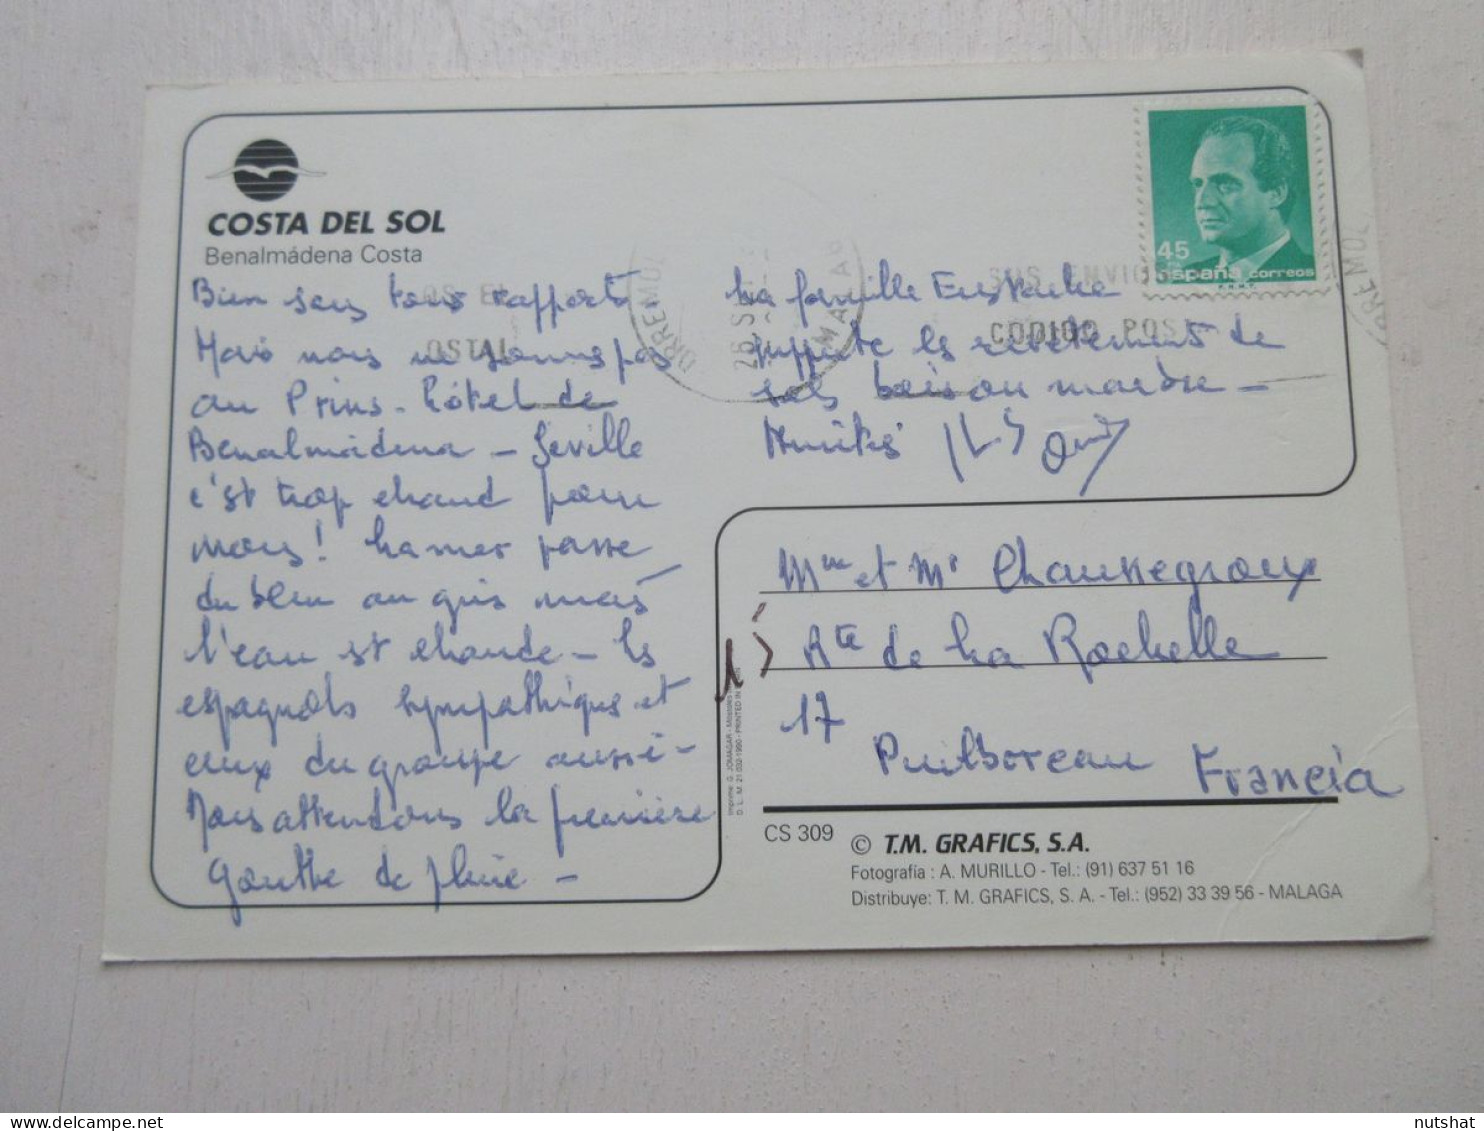 COSTA DEL SOL
Benalmádena Costa
Bien sous tous rapports
Mais nous ne sommes pas
au Prins. hôtel de
Benalmádena – Séville
c'est trop chaud pour
nous! La mer passe
du bleu au gris mais
l'eau est chaude – les
espagnols sympathiques et
ceux du groupe aussi –
Nous attendons la première
goutte de pluie –
La famille Eustache
supporte les revêtements de
sols bois ou marbre –
Amitiés
45
españa correos
SUS ENVIO
CODIGO POS
OS EL
OSTAL
ORREMOL
26 S
MALAG
ORREMO
Mme et Mr Chaussegroux
Rte de La Rochelle
17
Puilboreau Francia
CS 309
© T.M. GRAFICS, S.A.
Fotografía : A. MURILLO - Tel.: (91) 637 51 16
Distribuye: T. M. GRAFICS, S. A. - Tel.: (952) 33 39 56 - MALAGA
nutshat